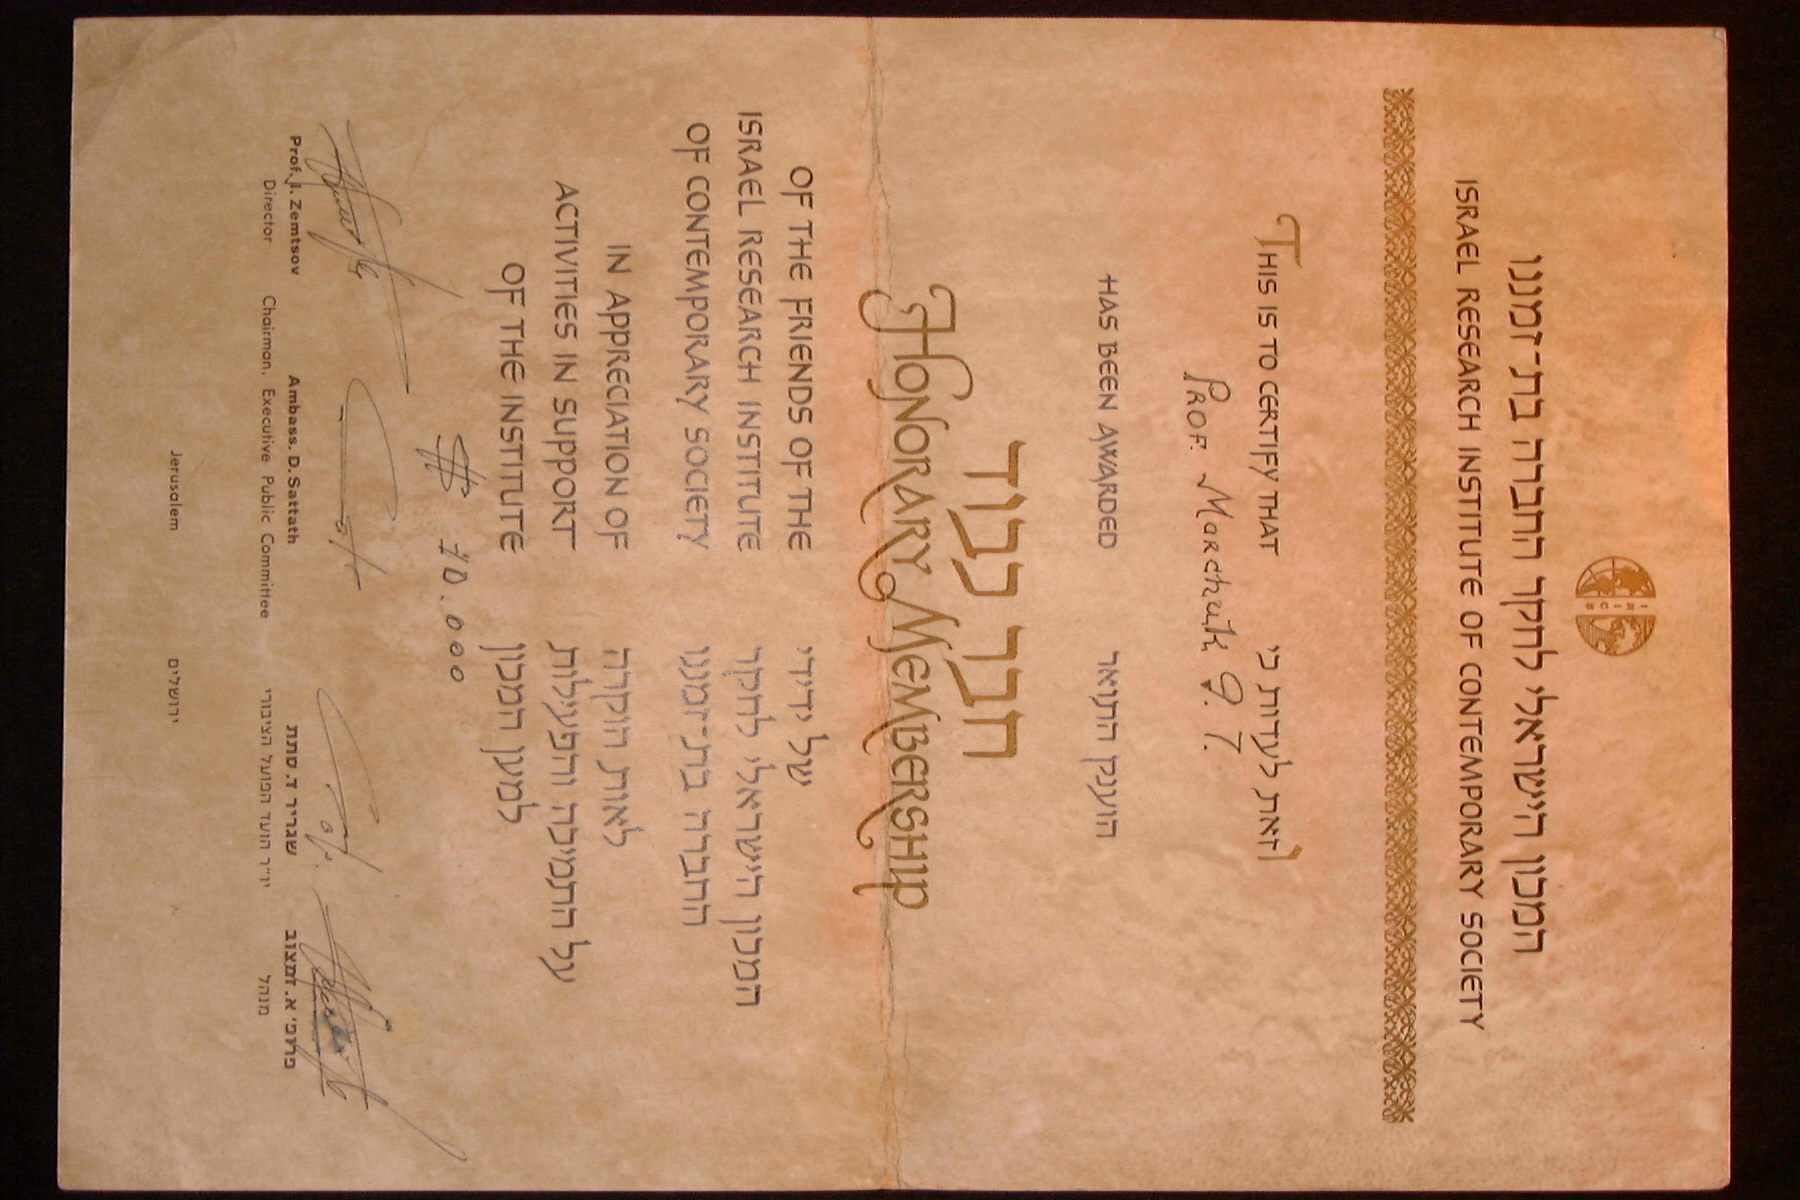 IRICS
המכון הישראלי לחקר החברה בת־זמננו
ISRAEL RESEARCH INSTITUTE OF CONTEMPORARY SOCIETY
THIS IS TO CERTIFY THAT
וזאת לעדות כי
PROF. Marchuk G. I.
HAS BEEN AWARDED
הוענק התואר
חבר כבוד
HONORARY MEMBERSHIP
OF THE FRIENDS OF THE
ISRAEL RESEARCH INSTITUTE
OF CONTEMPORARY SOCIETY
IN APPRECIATION OF
ACTIVITIES IN SUPPORT
OF THE INSTITUTE
של ידידי
המכון הישראלי לחקר
החברה בת־זמננו
לאות הוקרה
על התמיכה והפעילות
למען המכון
Prof. I. Zemtsov
Director
Ambass. D. Sattath
Chairman, Executive Public Committee
שגריר ד. סתת
יו"ר הועד הפועל הציבורי
פרופ' א. זמצוב
מנהל
Jerusalem
ירושלים